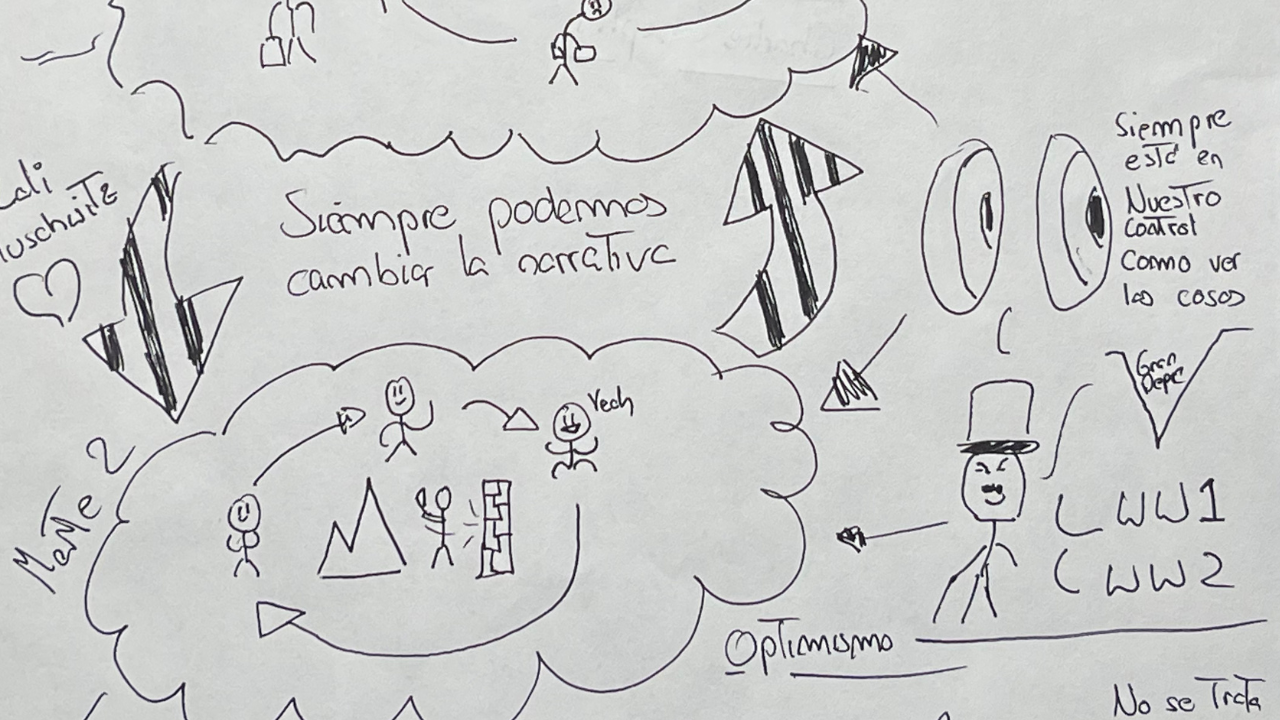 Siempre
está en
Nuestro
control
como ver
las cosas
Siempre podemos
cambiar la narrativa
Gran
Depr
Yeah
Mente 2
WW1
WW2
Optimismo
No se Trata